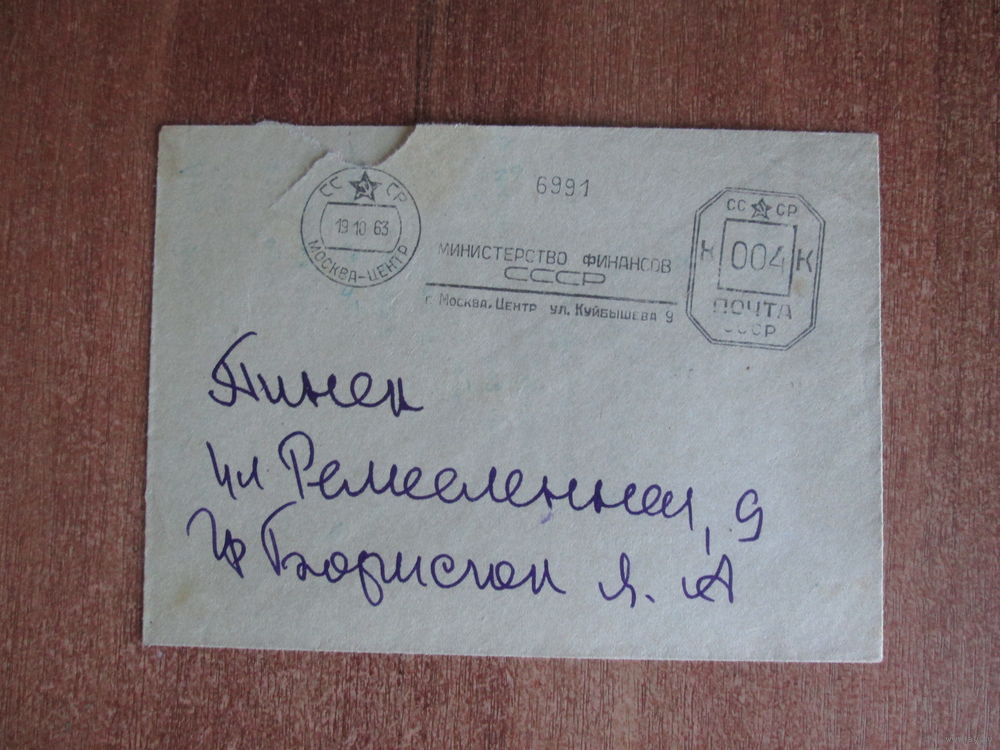 СС СР
19 10 63
МОСКВА-ЦЕНТР
6991
МИНИСТЕРСТВО ФИНАНСОВ
СССР
г. Москва, Центр ул. Куйбышева 9
СС СР
К 004 К
ПОЧТА
СССР
Пинск
ул Ремесленная, 9
Гр Я. А